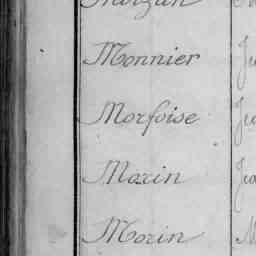 Monnier
Morfoise
Morin
Morin